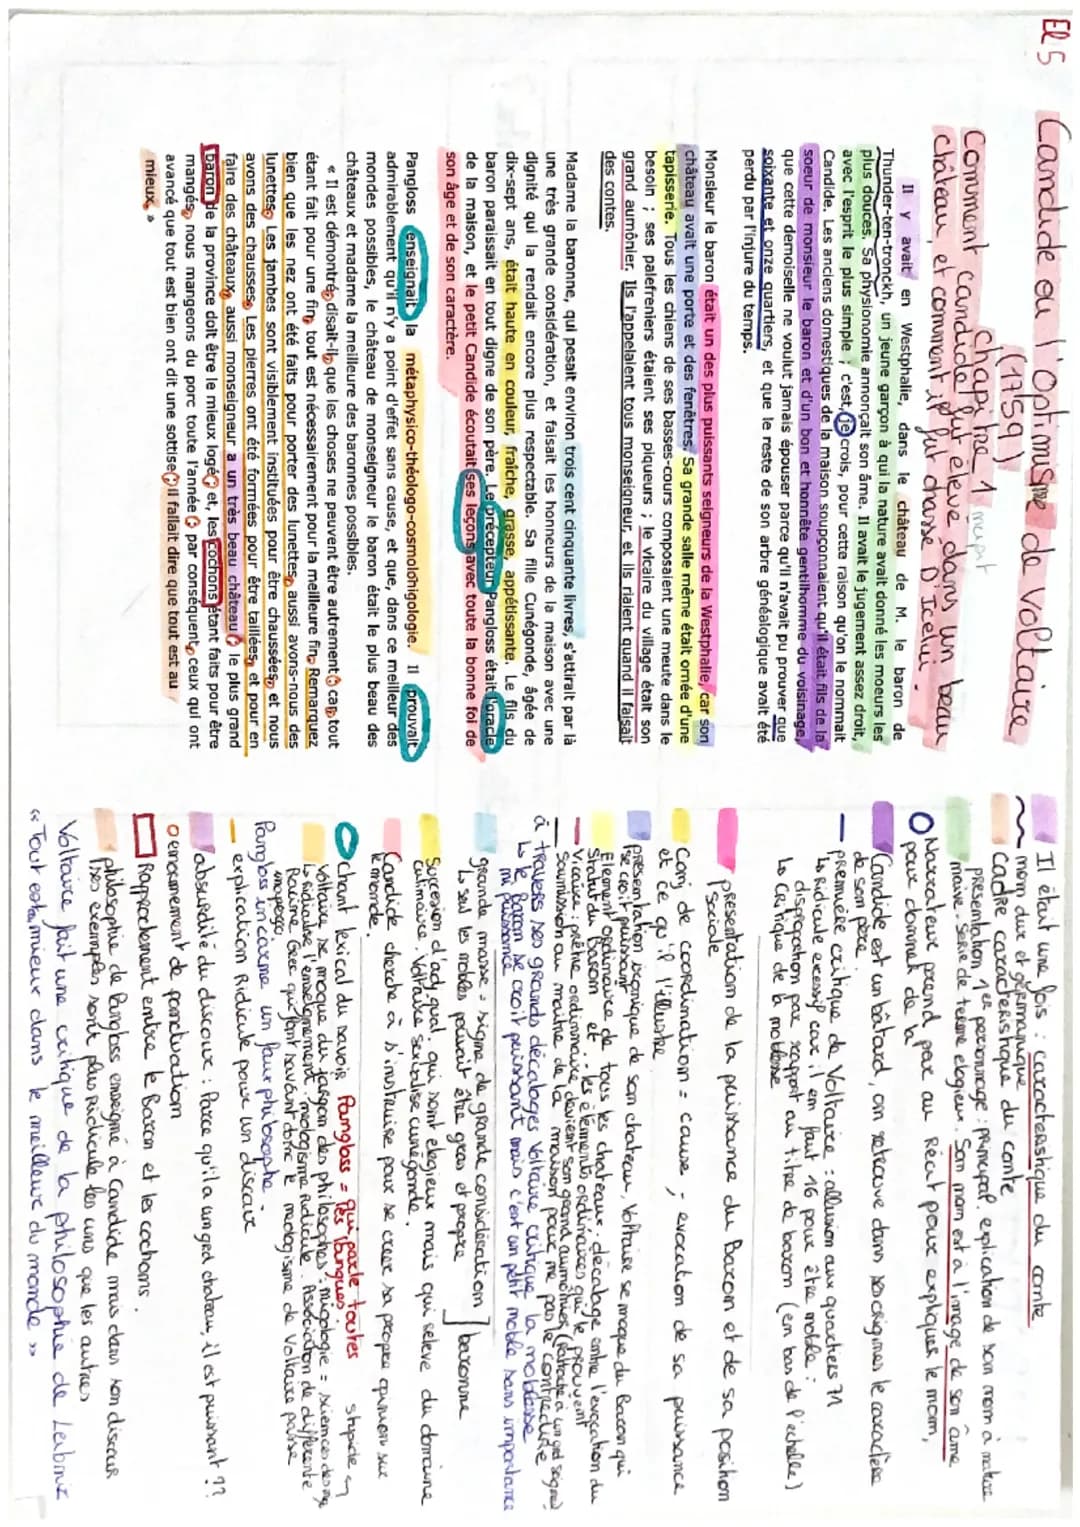 El 5
Candide ou l'Optimisme de Voltaire
(1759)
Chapitre 1
Comment candide fut élevé dans un beau
château, et comment il fut chassé D'Icelui.
Il y avait en Westphalie, dans le château de M. le baron de
Thunder-ten-tronckh, un jeune garçon à qui la nature avait donné les moeurs les
plus douces. Sa physionomie annonçait son âme. Il avait le jugement assez droit,
avec l'esprit le plus simple ; c'est, je crois, pour cette raison qu'on le nommait
Candide. Les anciens domestiques de la maison soupçonnaient qu'il était fils de la
soeur de monsieur le baron et d'un bon et honnête gentilhomme du voisinage,
que cette demoiselle ne voulut jamais épouser parce qu'il n'avait pu prouver que
soixante et onze quartiers, et que le reste de son arbre généalogique avait été
perdu par l'injure du temps.
Monsieur le baron était un des plus puissants seigneurs de la Westphalie, car son
château avait une porte et des fenêtres. Sa grande salle même était ornée d'une
tapisserie. Tous les chiens de ses basses-cours composaient une meute dans le
besoin ; ses palefreniers étaient ses piqueurs ; le vicaire du village était son
grand aumônier. Ils l'appelaient tous monseigneur, et ils riaient quand il faisait
des contes.
Madame la baronne, qui pesait environ trois cent cinquante livres, s'attirait par là
une très grande considération, et faisait les honneurs de la maison avec une
dignité qui la rendait encore plus respectable. Sa fille Cunégonde, âgée de
dix-sept ans, était haute en couleur, fraîche, grasse, appétissante. Le fils du
baron paraissait en tout digne de son père. Le précepteur Pangloss était l'oracle
de la maison, et le petit Candide écoutait ses leçons avec toute la bonne foi de
son âge et de son caractère.
Pangloss enseignait la métaphysico-théologo-cosmolonigologie. Il prouvait
admirablement qu'il n'y a point d'effet sans cause, et que, dans ce meilleur des
mondes possibles, le château de monseigneur le baron était le plus beau des
châteaux et madame la meilleure des baronnes possibles.
« Il est démontré, disait-il, que les choses ne peuvent être autrement : car, tout
étant fait pour une fin, tout est nécessairement pour la meilleure fin. Remarquez
bien que les nez ont été faits pour porter des lunettes, aussi avons-nous des
lunettes. Les jambes sont visiblement instituées pour être chaussées, et nous
avons des chausses. Les pierres ont été formées pour être taillées, et pour en
faire des châteaux, aussi monseigneur a un très beau château ; le plus grand
baron de la province doit être le mieux logé ; et, les cochons étant faits pour être
mangés, nous mangeons du porc toute l'année : par conséquent, ceux qui ont
avancé que tout est bien ont dit une sottise ; il fallait dire que tout est au
mieux. »
Il était une fois : caractéristique du conte
nom dur et germanique
Cadre caractéristique du conte
présentation 1er personnage : principal. explication de son nom à
naïve. Série de terme élogieux. Son nom est à l'image de son âme
Narrateur prend par au Récit pour expliquer le nom,
pour donner de la
Candide est un bâtard, on retrouve dans ses origines le caractère
de son père.
première critique de Voltaire : allusion aux quartiers 71
↳ Ridicule excessif car il en faut 16 pour être noble :
disproportion par rapport au titre de baron (en bas de l'échelle)
↳ Critique de la noblesse
présentation de la puissance du Baron et de sa position
sociale
Conj de coordination = cause, evocation de sa puissance
et ce qu'il l'illustre
présentation ironique de son chateau, Voltaire se moque du Baron qui
se croit puissant
Element ordinaire de tous les chateaux. décalage entre l'évocation du
statut du Baron et les éléments ordinaires qui le prouvent
vicaire : prêtre ordinaire devient son grand aumônier (Rattaché à un grd seigneur)
soumission au maitre de la maison pour ne pas le contredire
à travers ses grands décalages Voltaire critique la noblesse
↳ le Baron se croit puissant mais c'est un petit noble sans importance
ni puissance
grande masse = signe de grande considération
↳ seul les nobles pouvait être gras et propre
baronne
Succession d'adj. qual. qui sont élogieux mais qui relève du domaine
culinaire. Voltaire sexualise cunégonde.
Candide cherche à s'instruire pour se creer sa propre opinion sur
le monde.
Chant lexical du savoir Pangloss = qui parle toutes
les langues
stupide
Voltaire se moque du jargon des philosophes. nigologie = sciences des
↳ Ridiculise l'enseignement : néologisme Ridicule. Association de différente
Racine Grec qui font savant donc le néologisme de Voltaire passe
inaperçu
Pangloss incarne un faux philosophe.
explication Ridicule pour un discours
absurdité du discour : Parce qu'il a un grd chateau, il est puissant ??
enchaînement de ponctuation
Rapprochement entre le Baron et les cochons.
philosophie de Pangloss enseigné à Candide mais dans son discour
les exemples sont plus ridicule les uns que les autres
Voltaire fait une critique de la philosophie de Leibniz
« Tout est au mieux dans le meilleur du monde »